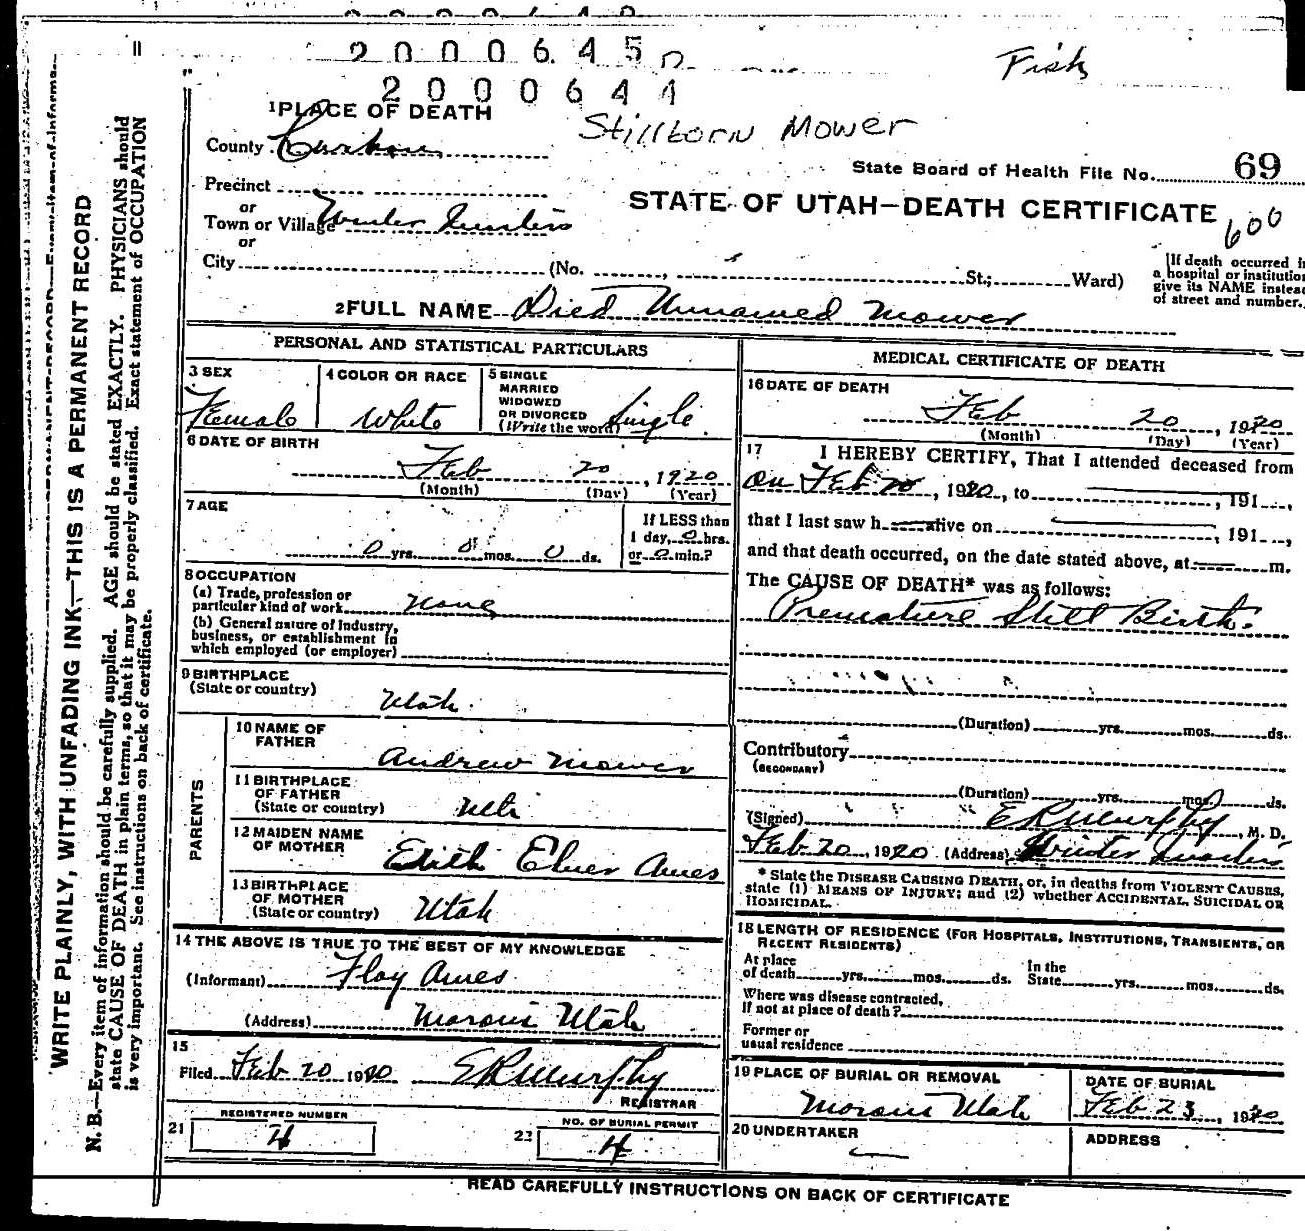 2000645
2000644
Fish
Stillborn Mower
1 PLACE OF DEATH
County Carbon
State Board of Health File No. 69
Precinct
or
STATE OF UTAH—DEATH CERTIFICATE
600
Town or Village Winter Quarters
or
City (No. , St.; Ward)
[If death occurred in
a hospital or institution
give its NAME instead
of street and number.
2 FULL NAME Died Unnamed Mower
PERSONAL AND STATISTICAL PARTICULARS
3 SEX
Female
4 COLOR OR RACE
White
5 SINGLE
MARRIED
WIDOWED
OR DIVORCED
(Write the word) Single
6 DATE OF BIRTH
Feb 20, 1920
(Month) (Day) (Year)
7 AGE
0 yrs. 0 mos. 0 ds.
If LESS than
1 day, 0 hrs.
or 0 min.?
8 OCCUPATION
(a) Trade, profession or
particular kind of work None
(b) General nature of Industry,
business, or establishment in
which employed (or employer)
9 BIRTHPLACE
(State or country)
Utah
PARENTS
10 NAME OF
FATHER
Andrew Mower
11 BIRTHPLACE
OF FATHER
(State or country)
12 MAIDEN NAME
OF MOTHER
Edith Ames
13 BIRTHPLACE
OF MOTHER
(State or country) Utah
14 THE ABOVE IS TRUE TO THE BEST OF MY KNOWLEDGE
(Informant) Floy Ames
(Address) Moroni Utah
15
Filed Feb 20 1920 E R Murphy
REGISTRAR
REGISTERED NUMBER
21 4
NO. OF BURIAL PERMIT
22 4
MEDICAL CERTIFICATE OF DEATH
16 DATE OF DEATH
Feb 20, 1920
(Month) (Day) (Year)
17 I HEREBY CERTIFY, That I attended deceased from
on Feb 20, 1920, to , 191
that I last saw h alive on , 191
and that death occurred, on the date stated above, at m.
The CAUSE OF DEATH* was as follows:
Premature Still Birth.
(Duration) yrs. mos. ds.
Contributory
(SECONDARY)
(Duration) yrs. mos. ds.
(Signed) E R Murphy, M. D.
Feb 20, 1920 (Address) Winter Quarters
* State the DISEASE CAUSING DEATH, or, in deaths from VIOLENT CAUSES,
state (1) MEANS OF INJURY; and (2) whether ACCIDENTAL, SUICIDAL OR
HOMICIDAL.
18 LENGTH OF RESIDENCE (FOR HOSPITALS, INSTITUTIONS, TRANSIENTS, OR
RECENT RESIDENTS)
At place
of death yrs. mos. ds.
In the
State yrs. mos. ds.
Where was disease contracted,
if not at place of death?
Former or
usual residence
19 PLACE OF BURIAL OR REMOVAL
Moroni Utah
DATE OF BURIAL
Feb 23, 1920
20 UNDERTAKER
ADDRESS
READ CAREFULLY INSTRUCTIONS ON BACK OF CERTIFICATE
WRITE PLAINLY, WITH UNFADING INK—THIS IS A PERMANENT RECORD
N. B.—Every item of information should be carefully supplied. AGE should be stated EXACTLY. PHYSICIANS should
state CAUSE OF DEATH in plain terms, so that it may be properly classified. Exact statement of OCCUPATION
is very important. See instructions on back of certificate.